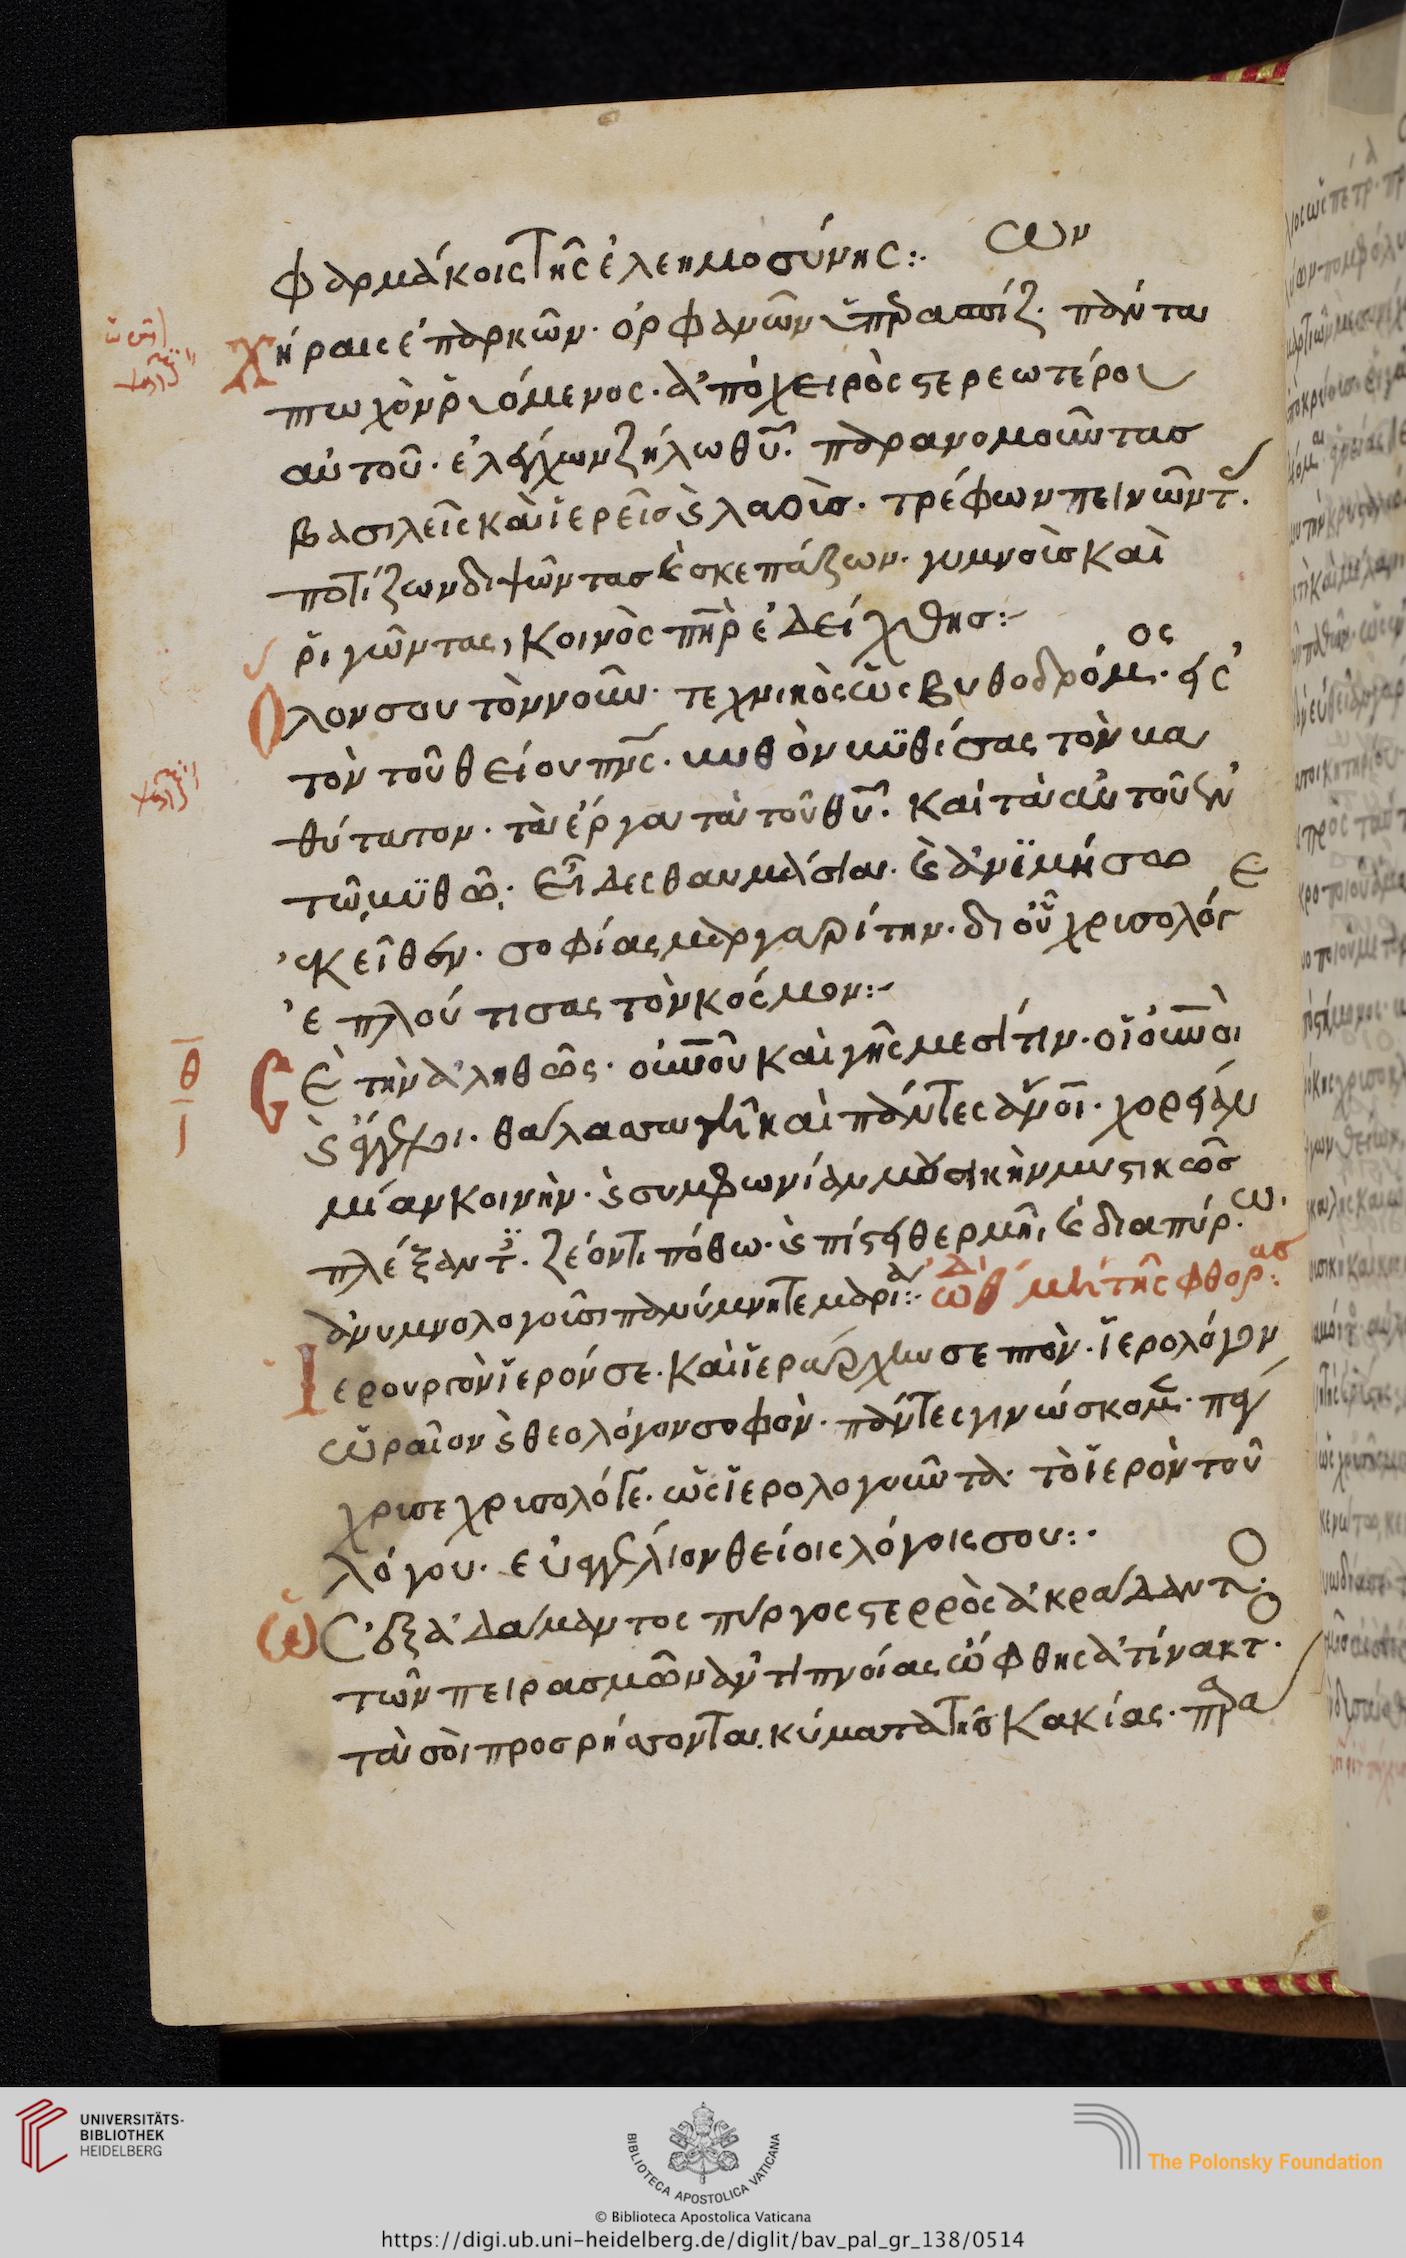 φαρμάκοις τῆς ἐλεημοσύνης:·
Χήραις ἐπαρκῶν· ὀρφανῶν ὑπερασπίζων· πάντα
πτωχὸν ῥυόμενος· ἀπὸ χειρὸς στερεωτέρου
αὐτοῦ· ἐλέγχων ζήλω θυ· παρανομοῦντασ
βασιλεῖς καὶ ἱερεῖσ καὶ λαοὺσ· τρέφων πεινῶντ·
ποτίζων διψῶντασ καὶ σκεπάζων· γυμνοὺσ καὶ
ῥιγῶντας, κοινὸς πηρ ἐδείχθησ:
Ὅλον σου τὸν νοῦν· τεχνικὸς ὡς βυθοδρόμος· εἰς
τὸν τοῦ θείου πνς· βυθὸν βυθίσας τὸν βα
θύτατον· τὰ ἔργα τὰ τοῦ θυ· καὶ τὰ αὐτοῦ ἐν
τῶ βυθῶ· εἶδες θαυμάσια· καὶ ἀνιμήσω
ἐκεῖθεν· σοφίας μαργαρίτην· δι οὗ χρισολόγε
ἐπλούτισας τὸν κόσμον:
θ
Σὲ τὴν ἀληθῶς· οὐνοῦ καὶ γῆς μεσίτιν· οἱ οὐνοὶ
καὶ ἄγγελοι· θάλασσα γῆ καὶ πάντες ἀνοι· χορείαν
μίαν κοινὴν· καὶ συμφωνίαν μουσικὴν μυστικῶσ
πλέξαντ· ζέοντι πόθω· καὶ πίστει θερμῆ, καὶ διαπύρω·
ἀνυμνολογοῦσι πανύμνητε μαρία:· ὠδ μὴ τῆς φθορας:
Ἱερουργὸν ἱερόν σε· καὶ ἱεράρχην σεπτὸν· ἱερολόγον
ὡραῖον καὶ θεολόγον σοφὸν· πάντες γινώσκομεν· πά
χρισε χρισολόγε· ὡς ἱερολογοῦντα· τὸ ἱερὸν τοῦ
λόγου· εὐαγγέλιον θείοις λόγοις σου:·
Ὡς ἐξ ἀδάμαντος πύργος στερρὸς ἀκράδαντο·
τῶν πειρασμῶν ἀντιπνοίας ὤφθης ἀτίνακτο·
τὰ σοὶ προσρήσσονται κύματα τῆσ κακίας· πρα
UNIVERSITÄTS-
BIBLIOTHEK
HEIDELBERG
BIBLIOTECA APOSTOLICA VATICANA
The Polonsky Foundation
© Biblioteca Apostolica Vaticana
https://digi.ub.uni-heidelberg.de/diglit/bav_pal_gr_138/0514